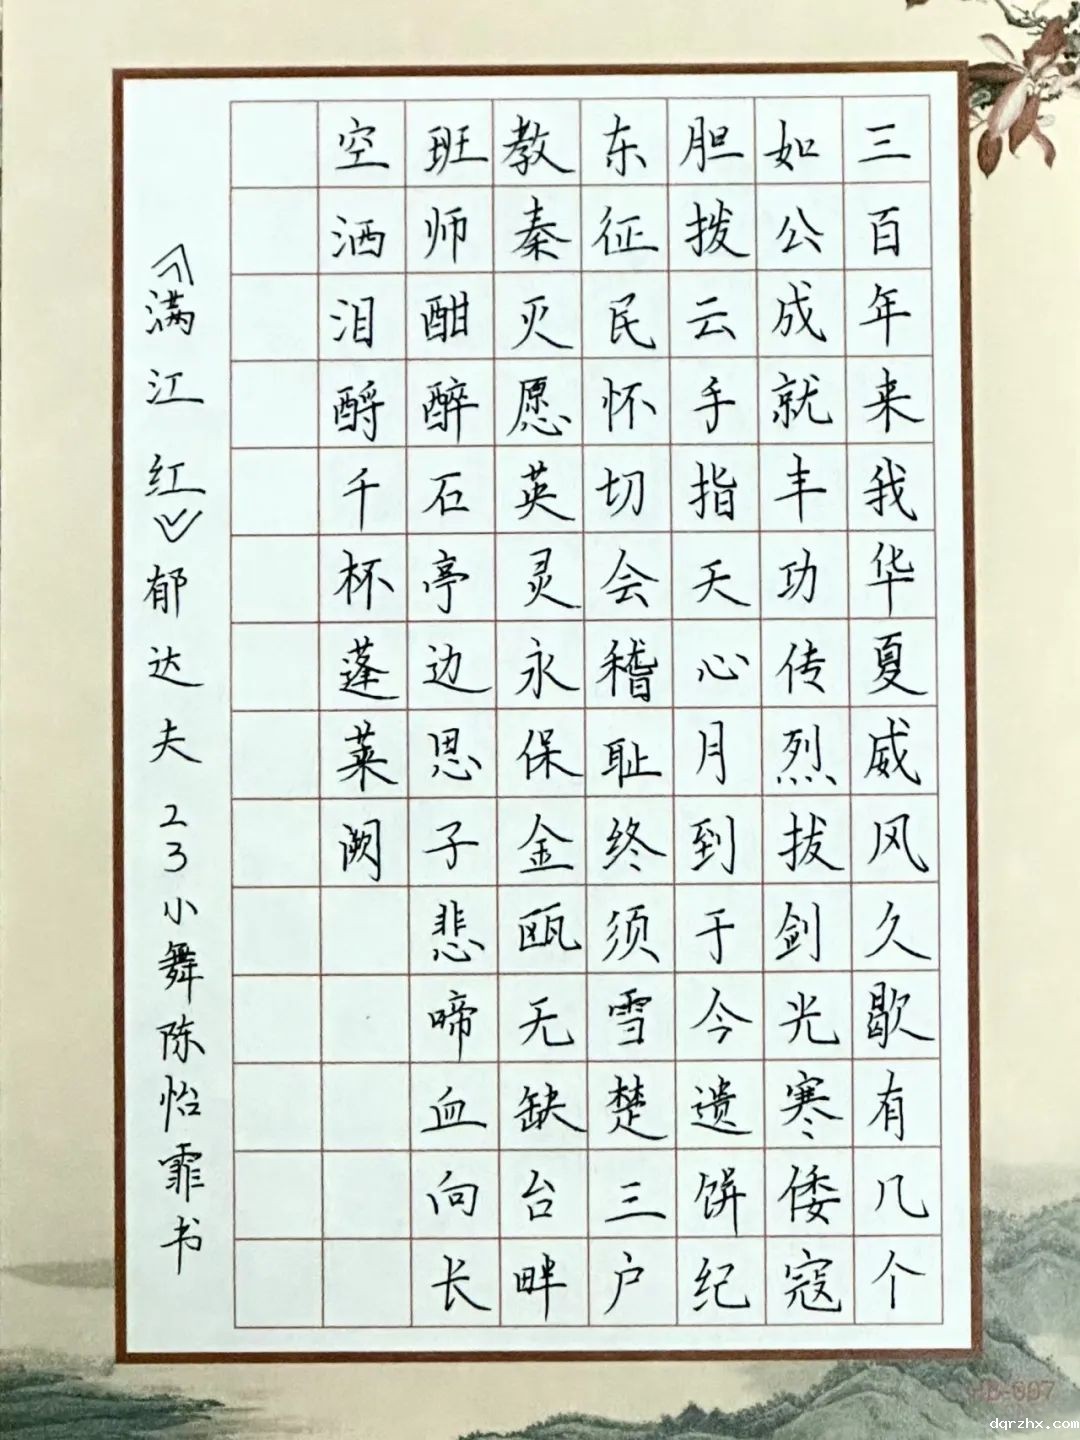 三百年来我华夏威风久歇有几个
如公成就丰功传烈拔剑光寒倭寇
胆拨云手指天心月到于今遗饼纪
东征民怀切会稽耻终须雪楚三户
教秦灭愿英灵永保金瓯无缺台畔
班师酣醉石亭边思子悲啼血向长
空洒泪酹千杯蓬莱阙
《满江红》郁达夫 23小舞陈怡霏书
dqrzhx.com